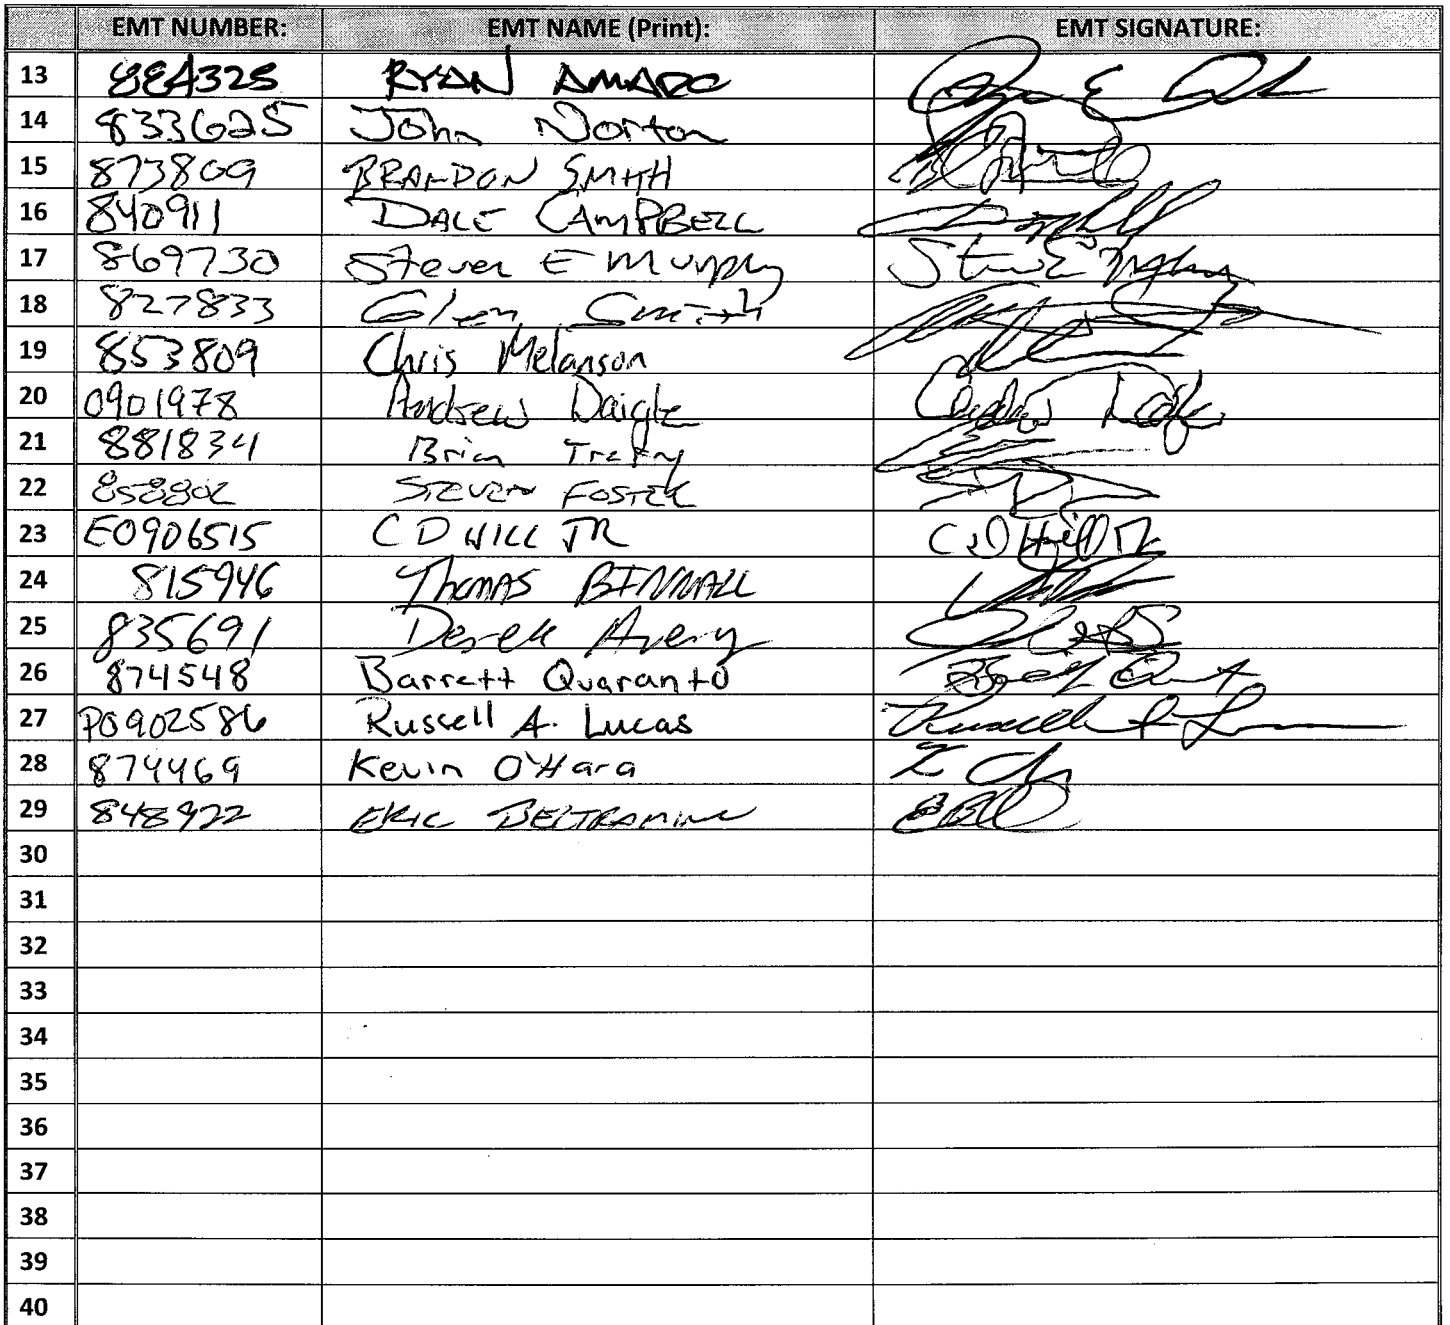 EMT NUMBER: EMT NAME (Print): EMT SIGNATURE:
13 884325 RYAN AMADO
14 833625 John Norton
15 873809 BRANDON SMITH
16 840911 DALE CAMPBELL
17 869730 Steven E Murphy
18 827833 Glen Smith
19 853809 Chris Melanson
20 0901978 Andrew Daigle
21 881834 Brian
22 858802 STEVEN FOSTER
23 E0906515 C D HILL JR C D Hill JR
24 815946 Thomas BINNALL
25 835691 Derek Avery
26 874548 Barrett Quaranto
27 P0902586 Russell A. Lucas Russell A L
28 874469 Kevin O'Hara
29 848922 ERIC BELTRAMINI
30
31
32
33
34
35
36
37
38
39
40